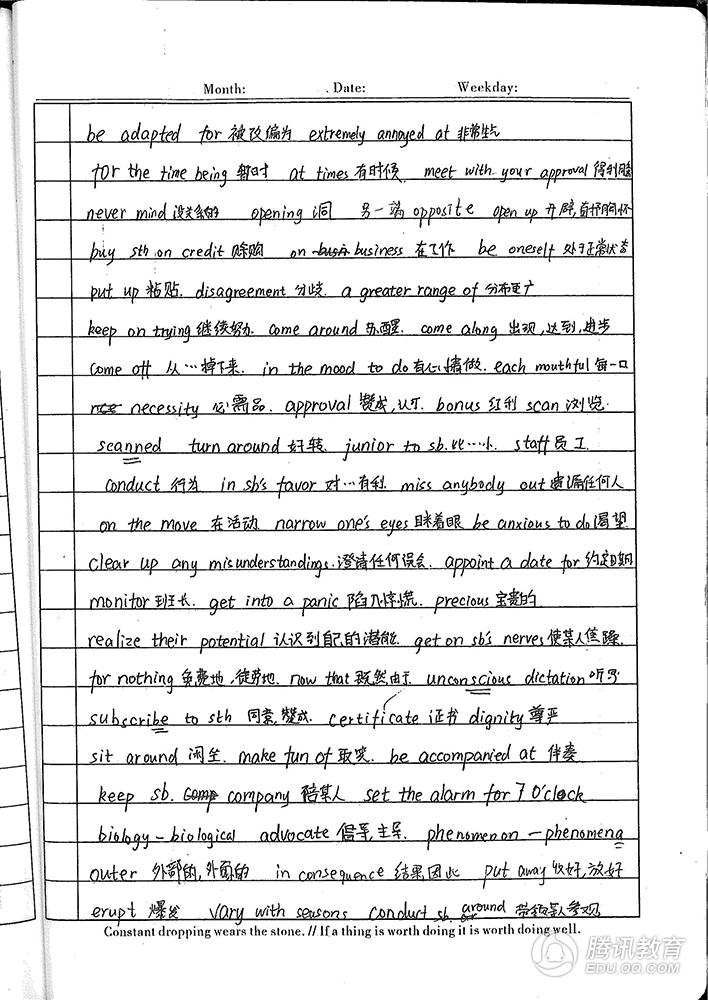 Month: Date: Weekday:
be adapted for 被改编为 extremely annoyed at 非常生气
for the time being 暂时 at times 有时候 meet with your approval 得到
never mind 没关系的 opening 洞 另一端 opposite open up 开辟,
buy sth on credit 赊购 on business 在工作 be oneself 处于正常状态
put up 粘贴. disagreement 分歧. a greater range of 分布更广
keep on trying 继续努力. come around 苏醒. come along 出现,达到,进步
come off 从…掉下来. in the mood to do 有心情做. each mouthful 每一口
necessity 必需品. approval 赞成,认可. bonus 红利 scan 浏览.
scanned turn around 好转. junior to sb. 比…小. staff 员工
conduct 行为 in sb's favor 对…有利. miss anybody out 遗漏任何人
on the move 在活动. narrow one's eyes 眯着眼 be anxious to do 渴望
clear up any misunderstandings. 澄清任何误会. appoint a date for 约定日期
monitor 班长. get into a panic 陷入惊慌. precious 宝贵的
realize their potential 认识到自己的潜能. get on sb's nerves 使某人焦躁.
for nothing 免费地,徒劳地. now that 既然由于. unconscious dictation 听写
subscribe to sth 同意,赞成. certificate 证书 dignity 尊严
sit around 闲坐. make fun of 取笑. be accompanied at 伴奏
keep sb. company 陪某人 set the alarm for 7 o'clock
biology – biological advocate 倡导,主导. phenomenon – phenomena
outer 外部的,外面的 in consequence 结果,因此 put away 收好,放好
erupt 爆发 vary with seasons conduct sb. around 带领某人参观
Constant dropping wears the stone. // If a thing is worth doing it is worth doing well.
腾讯教育
EDU.QQ.COM